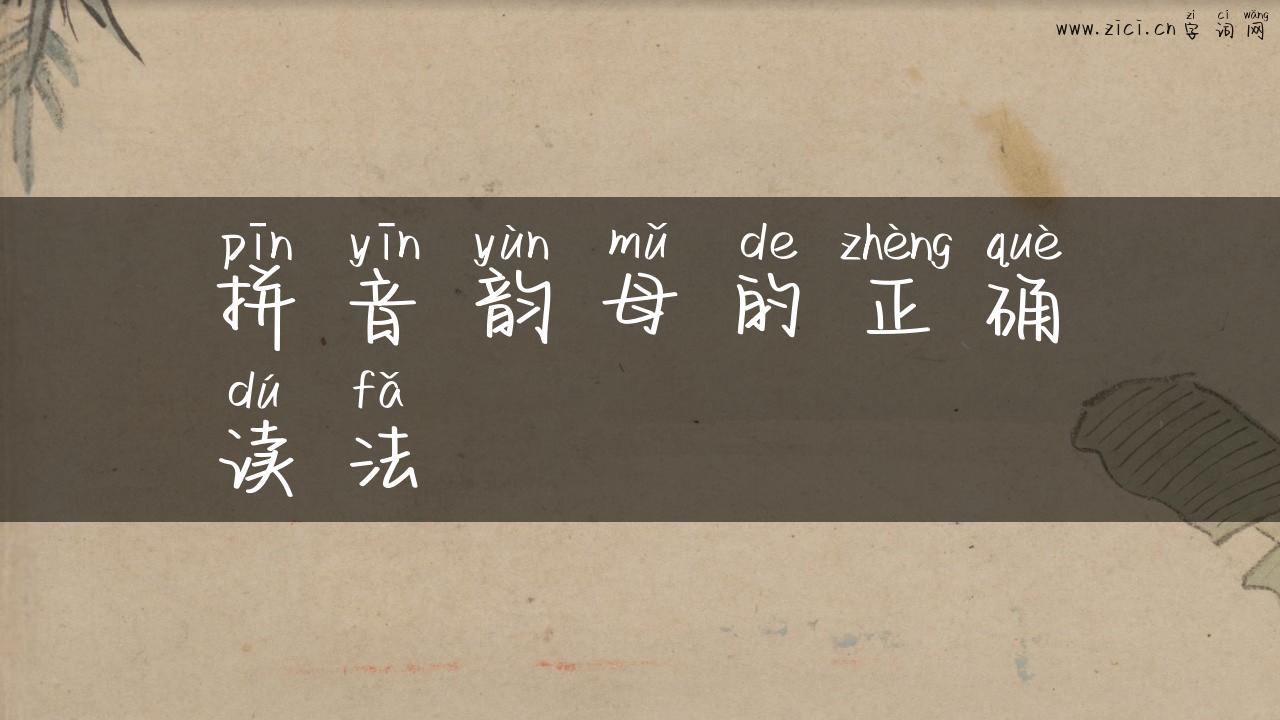 zì cí wǎng
www.zici.cn 字词网
pīn yīn yùn mǔ de zhèng què
拼音韵母的正确
dú fǎ
读法